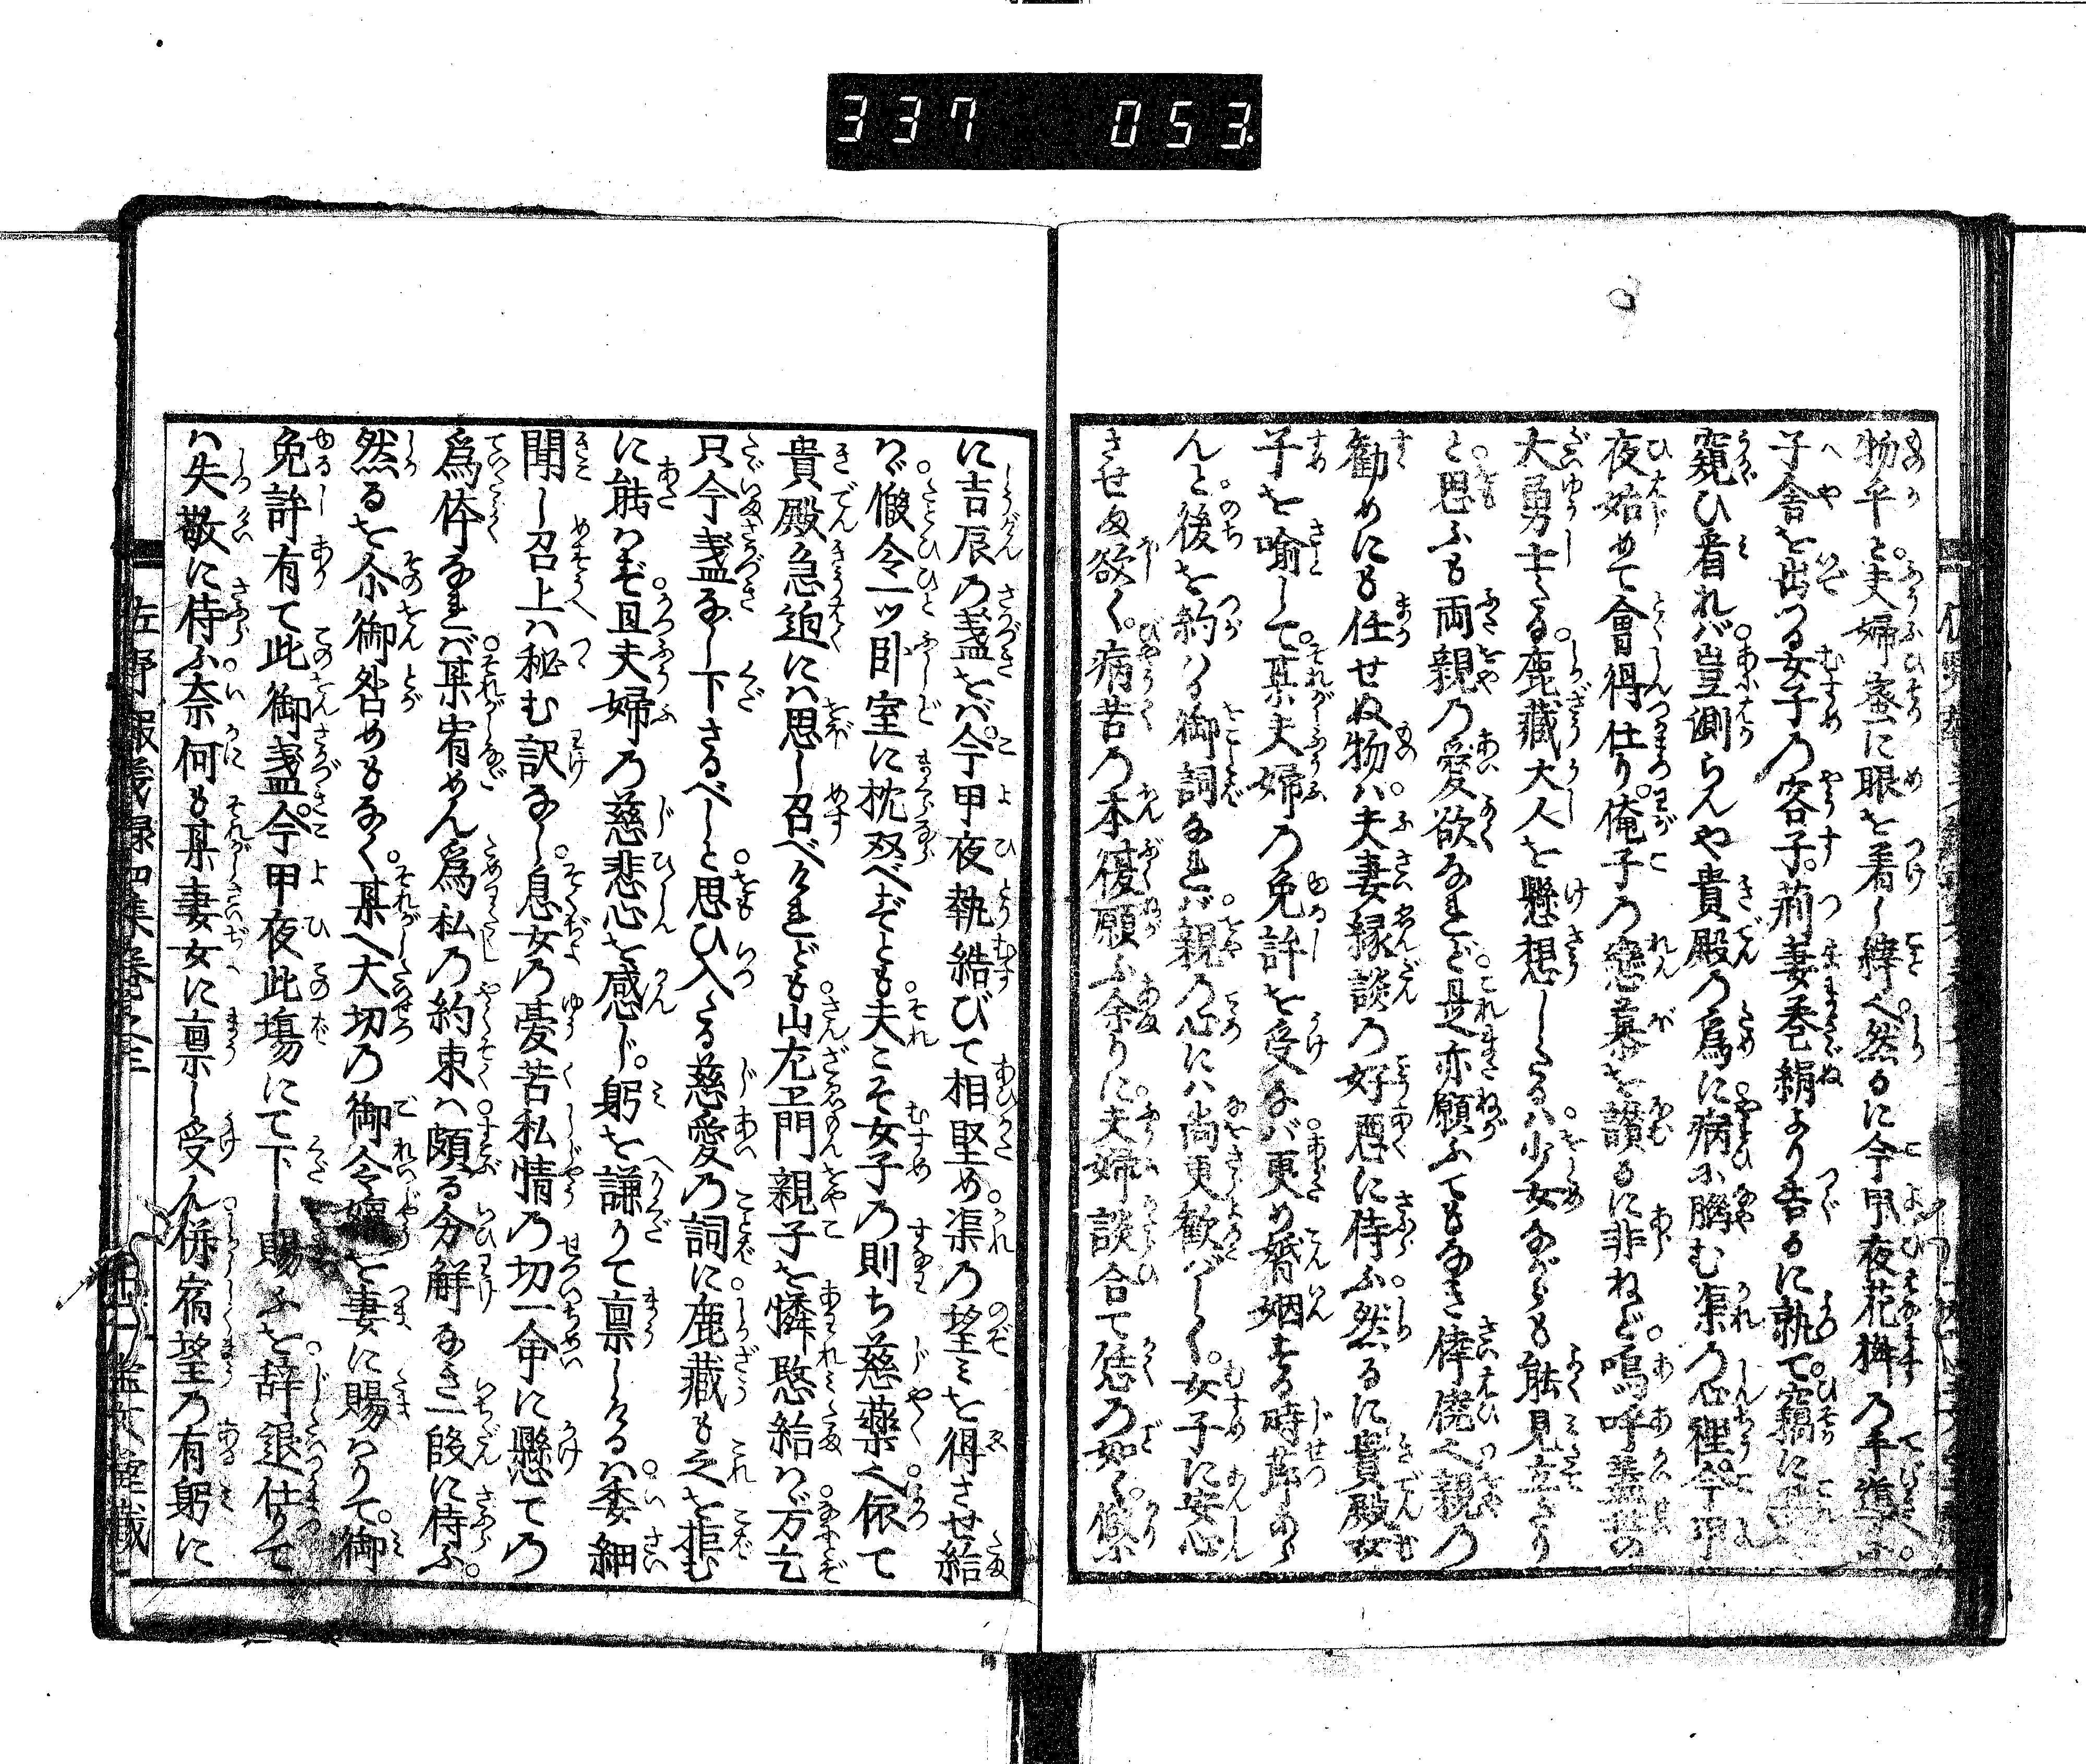 337 053
物乎と。夫婦窃に眼を着し縡々。然るに今甲夜花桝の手導
子舎を出つる女子の容子。荊妻巻絹より告るに執て。竊に
窺ひ看れバ。豈測らんや貴殿の為に病に脳む渠の心裡。今甲
夜始めて會得仕り。俺子の戀慕を讃るに非ねど。嗚呼
大勇士たる。鹿藏大人を懸想したるハ。少女ながらも能見立たり
と。思ふも両親の愛欲なれど。是亦願ふてもなき倖僥之親の
勧めにも任せぬ物ハ。夫妻縁談の好悪に侍ふ。然るに貴殿女
子を喩して。某夫婦の免許を受なバ。更め婚姻する時節あら
んと。後を約りる御詞なれバ。親の心にハ尚更歓バしく。女子に安心
させ度欲く。病苦の本復願ふ余りに。夫婦談合て恁の如く。條
に吉辰の盞をバ。今甲夜執結びて相堅め。渠の望ミを得させ給
バ。假令一ツ臥室に枕双べずとも。夫こそ女子の則ち慈薬々。依て
貴殿急迫にハ思し召べけれども。山左卫門親子を憐愍給ハバ。万乞
只今盞なし下さるべしと。思ひ入たる慈愛の詞に。鹿藏も之を拒む
に能ハず。且夫婦の慈悲心を感じ。躬を謙りて禀しけるハ。委細
聞し召上ハ秘む訳なし。息女の憂苦私情の切一命に懸ての
為体なれバ。某宥めん為私の約束ハ。頗る分觧なき一段に侍ふ。
然るを尒御咎めもなく。某へ大切の御令嬢を妻に賜ハりて。御
免許有て此御盞。今甲夜此塲にて下し賜ふを。辞退仕りて
ハ失敬に侍ふ。奈何も某妻女に禀し受ん。併宿望の有躬に
佐野報義録四集巻之三